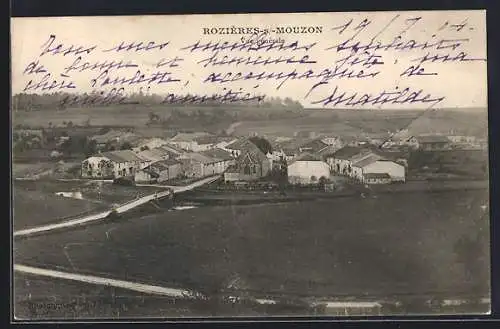 ROZIÈRES-s/-MOUZON
Vue générale
19 - 7 - 04
Tous mes meilleurs souhaits
de bonne et heureuse fête, ma
chère Laudette accompagnés de
mille amitiés Mathilde